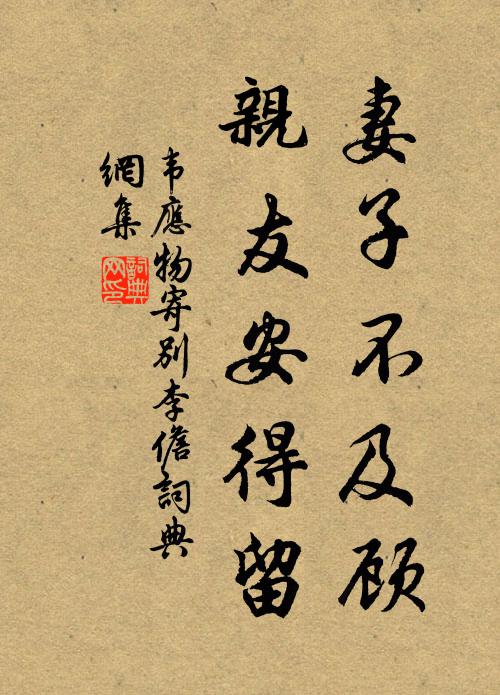 妻子不及顾
親友安得留
韦應物寄別李儋詞典
網集
詞典網印